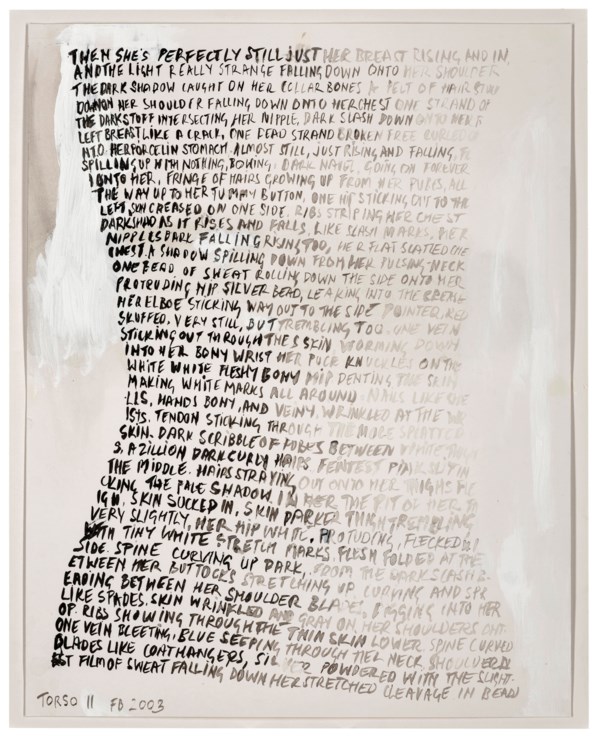 THEN SHE'S PERFECTLY STILL JUST HER BREAST RISING AND IN,
AND THE LIGHT REALLY STRANGE FALLING DOWN ONTO HER SHOULDER
THE DARK SHADOW CAUGHT ON HER COLLAR BONES A PELT OF HAIR
DOWN ON HER SHOULDER FALLING DOWN ONTO HER CHEST ONE STRAND OF
THE DARK STUFF INTERSECTING HER NIPPLE, DARK SLASH DOWN ONTO HER
LEFT BREAST LIKE A CRACK, ONE DEAD STRAND BROKEN FREE CURLED
NTO HER PORCELIN STOMACH. ALMOST STILL, JUST RISING AND FALLING,
SPILLING UP WITH NOTHING, BOWING. DARK NAVEL GOING ON FOREVER
INTO HER, FRINGE OF HAIRS GROWING UP FROM HER PUBIS, ALL
THE WAY UP TO HER TUMMY BUTTON, ONE HIP STICKING OUT TO THE
LEFT, SKIN CREASED ON ONE SIDE. RIBS STRIPING HER CHEST
DARK SHADOW AS IT RISES AND FALLS, LIKE SLASH MARKS, HER
NIPPLES DARK FALLING RISING TOO, HER FLAT SLATTED
CHEST. A SHADOW SPILLING DOWN FROM HER PULSING NECK
ONE BEAD OF SWEAT ROLLING DOWN THE SIDE ONTO HER
PROTRUDING HIP SILVER BEAD, LEAKING INTO THE
HER ELBOE STICKING WAY OUT TO THE SIDE POINTED, RED
SKUFFED. VERY STILL, BUT TREMBLING TOO. ONE VEIN
STICKING OUT THROUGH THE SKIN WORMING DOWN
INTO HER BONY WRIST HER PUCK KNUCKLES ON THE
WHITE WHITE FLESHY BONY HIP DENTING THE SKIN
MAKING WHITE MARKS ALL AROUND. NAILS LIKE
LLS, HANDS BONY, AND VEINY, WRINKLED AT THE WR
ISTS. TENDON STICKING THROUGH THE
SKIN. DARK SCRIBBLE OF PUBES BETWEEN WHITE
S, A ZILLION DARK CURLY HAIRS. FEINTEST PINK SLIT IN
THE MIDDLE. HAIRS STRAYING OUT ONTO HER THIGHS
CKING THE PALE SHADOW IN HER THE PIT OF HER TH
IGH, SKIN SUCKED IN, SKIN DARKER THIGH TREMBLING
VERY SLIGHTLY, HER HIP WHITE, PROTUDING, FLECKED
WITH TINY WHITE STRETCH MARKS FLESH FOLDED AT THE
SIDE. SPINE CURVING UP DARK, FROM THE DARK SLASH B
ETWEEN HER BUTTOCKS STRETCHING UP CURVING AND SPR
EADING BETWEEN HER SHOULDER BLADES, DIGGING INTO HER
LIKE SPADES. SKIN WRINKLED AND GRAY ON HER SHOULDERS ONE
OP. RIBS SHOWING THROUGH THE THIN SKIN LOWER. SPINE CURVED
ONE VEIN BLEETING, BLUE SEEPING THROUGH HER NECK SHOULDER
BLADES LIKE COATHANGERS, HER POWDERED WITH THE SLIGHT-
EST FILM OF SWEAT FALLING DOWN HER STRETCHED CLEAVAGE IN BEADS
TORSO II FB 2003